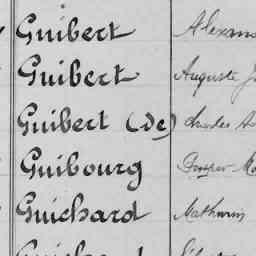 Guibert
Guibert Auguste
Guibert (de) Charles
Guibourg Prosper
Guichard Mathurin